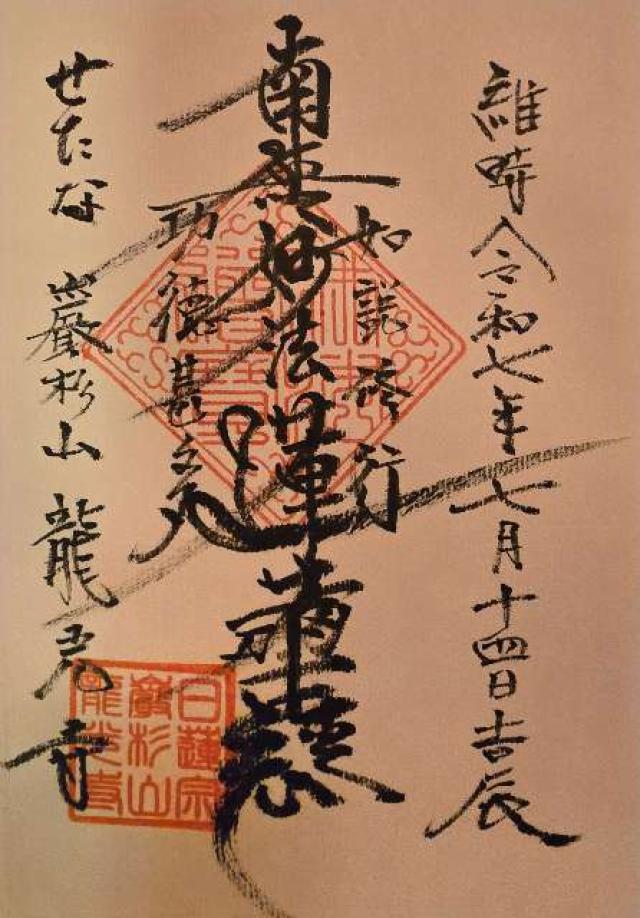 維時令和七年七月十四日吉辰
如説修行
南無妙法蓮華経
功徳甚多
せたな 巖杉山 龍光寺
日蓮宗
巌杉山
龍光寺